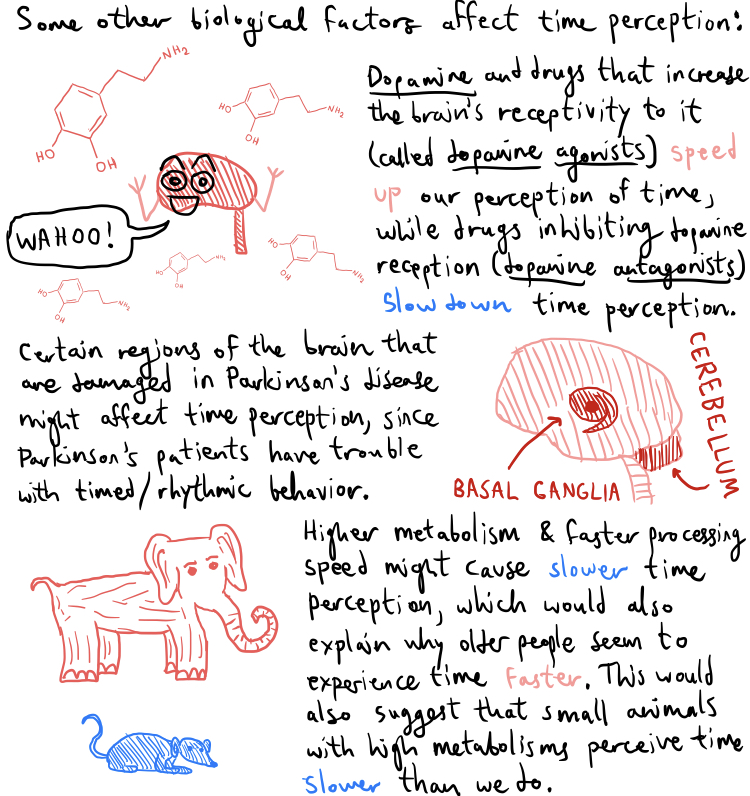 Some other biological factors affect time perception:
NH₂
HO
OH
HO
OH
NH₂
Dopamine and drugs that increase
the brain's receptivity to it
(called dopamine agonists) speed
up our perception of time,
while drugs inhibiting dopamine
reception (dopamine antagonists)
slow down time perception.
WAHOO!
HO
OH
NH₂
HO
OH
NH₂
HO
OH
NH₂
Certain regions of the brain that
are damaged in Parkinson's disease
might affect time perception, since
Parkinson's patients have trouble
with timed/rhythmic behavior.
BASAL GANGLIA
CEREBELLUM
Higher metabolism & faster processing
speed might cause slower time
perception, which would also
explain why older people seem to
experience time faster. This would
also suggest that small animals
with high metabolisms perceive time
slower than we do.